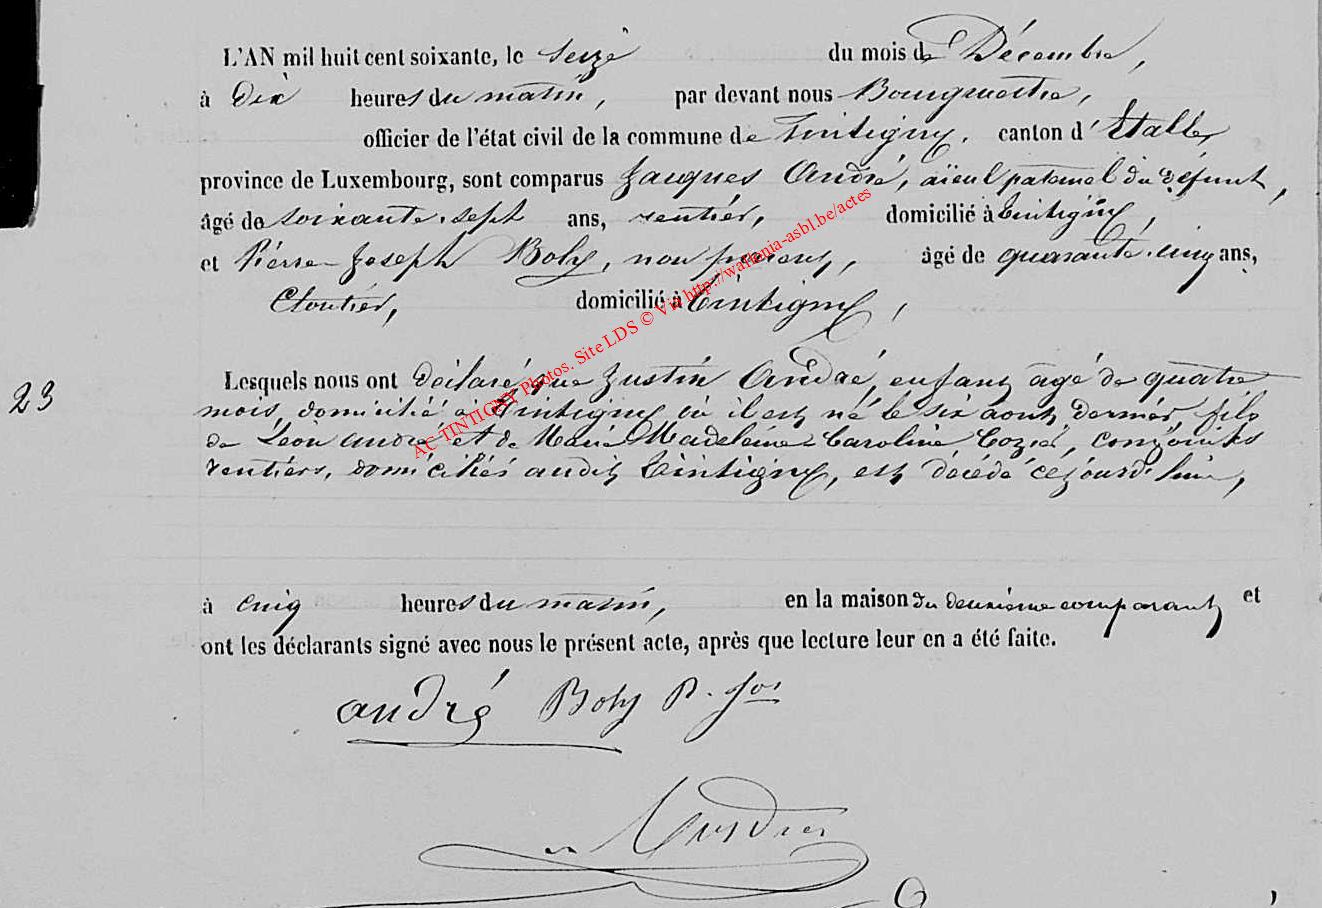 L'AN mil huit cent soixante, le seize du mois de Décembre,
à dix heures du matin, par devant nous Bourgmestre,
officier de l'état civil de la commune de Tintigny, canton d'Etalle,
province de Luxembourg, sont comparus Jacques André, aïeul paternel du défunt,
âgé de soixante-sept ans, rentier, domicilié à Tintigny,
et Pierre-Joseph Boly, non parent, âgé de quarante-cinq ans,
Cloutier, domicilié à Tintigny,
23 Lesquels nous ont déclaré que Justin André, enfant âgé de quatre
mois, domicilié à Tintigny où il est né le six août dernier, fils
de Léon André et de Marie Madeleine Caroline Cozier, conjoints
rentiers, domiciliés audit Tintigny, est décédé cejourd'hui,
à cinq heures du matin, en la maison du deuxième comparant et
ont les déclarants signé avec nous le présent acte, après que lecture leur en a été faite.
andré Boly P. Jos
AC TINTIGNY Photos. Site LDS © Via http://wallonia-asbl.be/actes